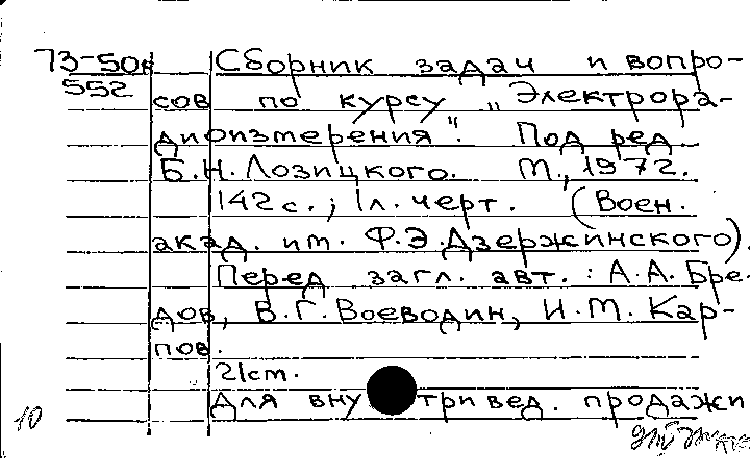 73-50к Сборник задач и вопро-
552 сов по курсу „Электрора-
диоизмерения". Под ред.
Б.Н. Лозицкого. М., 1972.
142 с.; 1 л. черт. (Воен.
акад. им. Ф.Э. Дзержинского).
Перед загл. авт.: А.А. Бре-
дов, В.Г. Воеводин, И.М. Кар-
пов.
21 cm.
Для вну тривед. продажи
10